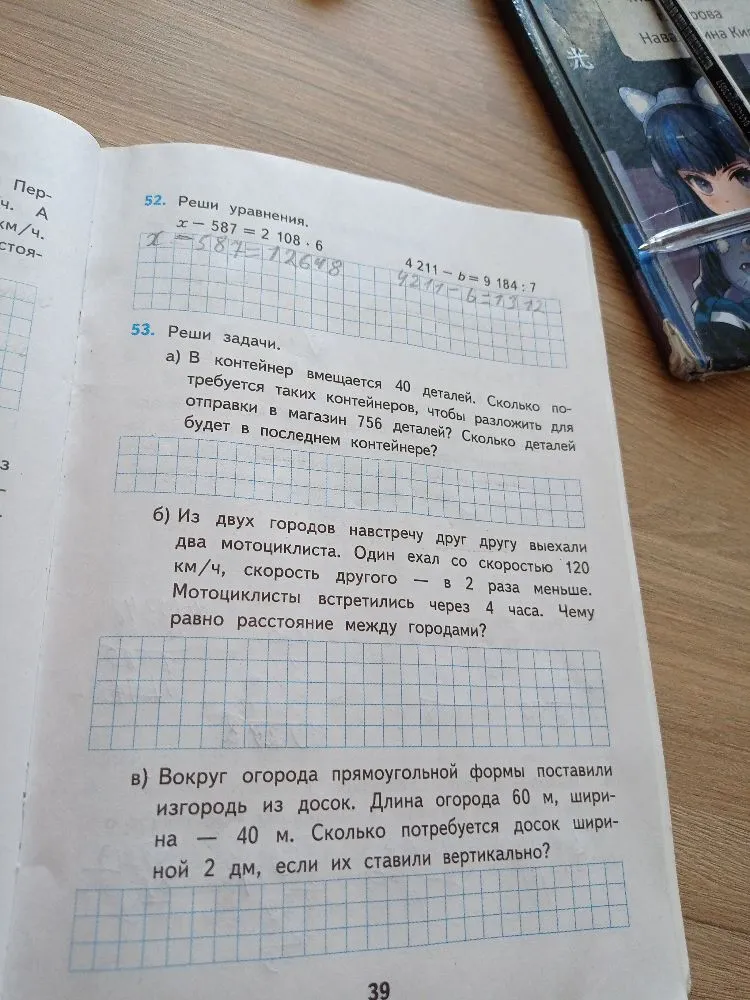 Пер-
ч. А
км/ч.
стоя-
з
рова
ина Ки
光
52. Реши уравнения.
x − 587 = 2 108 · 6
4 211 − b = 9 184 : 7
x − 587 = 12648
4211 − b = 1312
53. Реши задачи.
а) В контейнер вмещается 40 деталей. Сколько по-
требуется таких контейнеров, чтобы разложить для
отправки в магазин 756 деталей? Сколько деталей
будет в последнем контейнере?
б) Из двух городов навстречу друг другу выехали
два мотоциклиста. Один ехал со скоростью 120
км/ч, скорость другого — в 2 раза меньше.
Мотоциклисты встретились через 4 часа. Чему
равно расстояние между городами?
в) Вокруг огорода прямоугольной формы поставили
изгородь из досок. Длина огорода 60 м, шири-
на — 40 м. Сколько потребуется досок шири-
ной 2 дм, если их ставили вертикально?
39